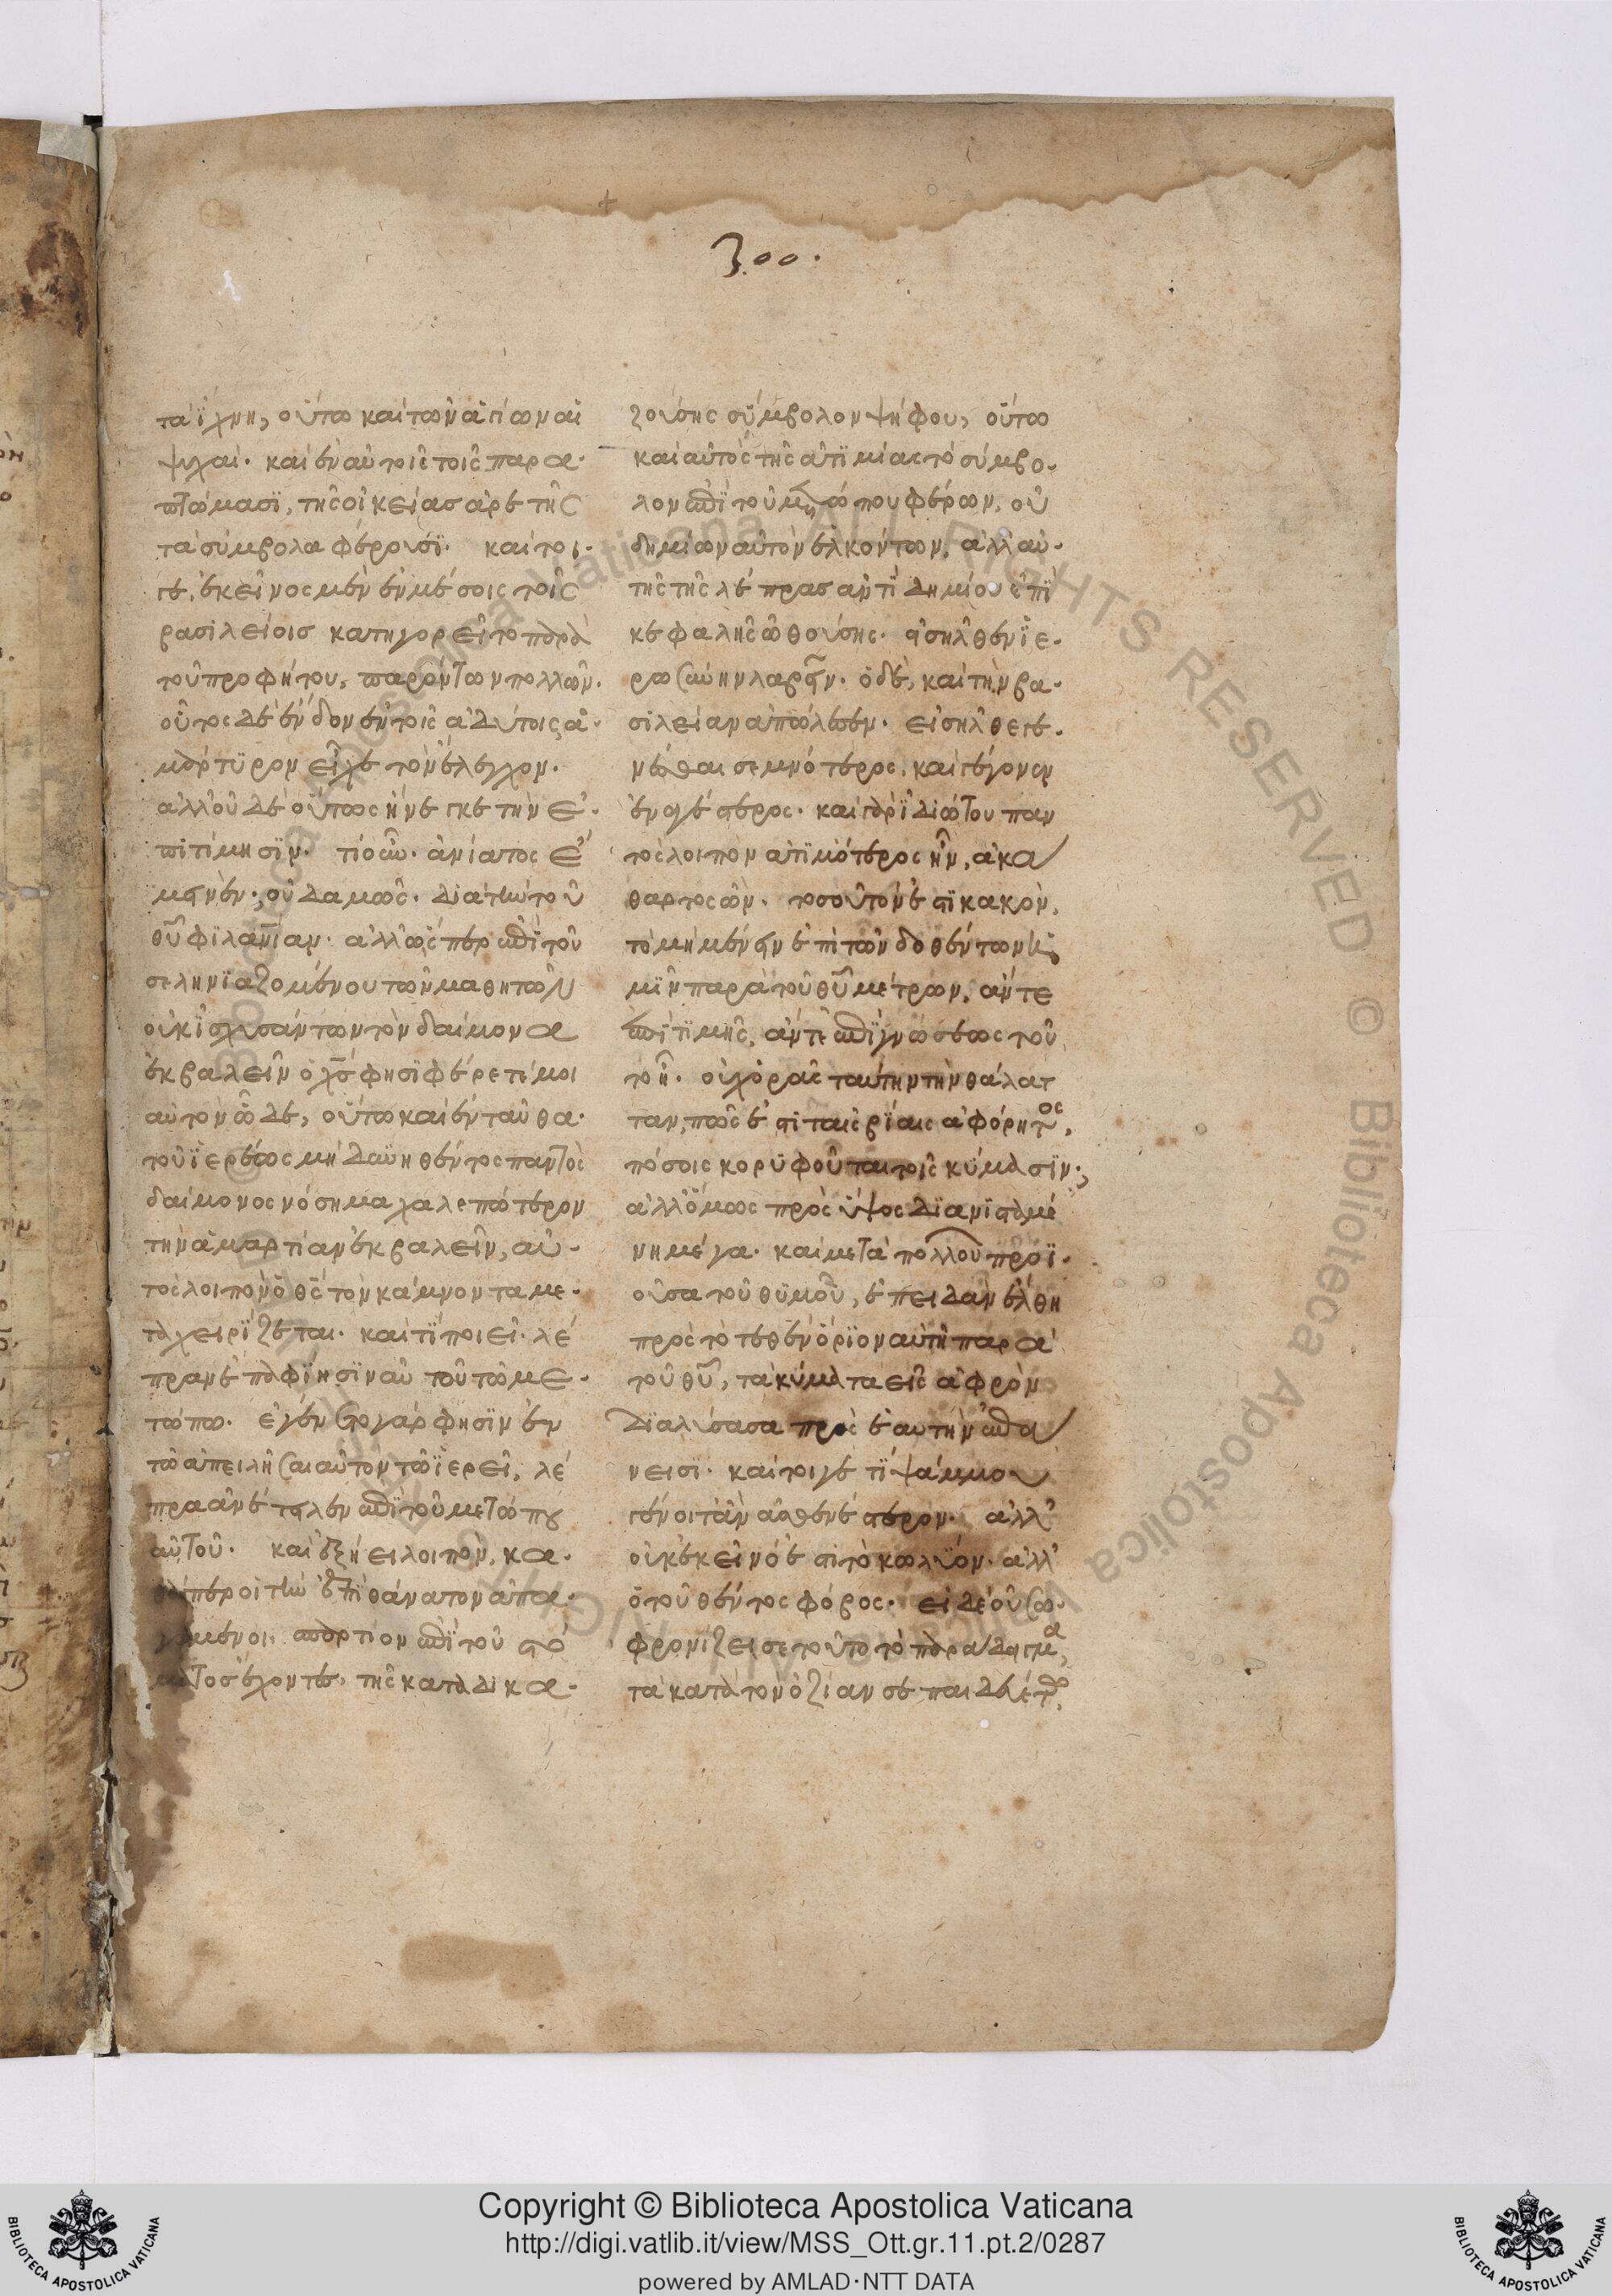 300.
τὰ ἴχνη, οὕτω καὶ τῶν ἁγίων αἱ
ψυχαί· καὶ ἐν αὐτοῖς τοῖς παρα·
πτώμασϊ, τῆς οἰκείας ἀρετῆς
τὰ σύμβολα φέρουσϊ· καίτοι·
γε, ἐκεῖνος μὲν ἐν μέσοις τοῖς
βασιλείοις κατηγορεῖτο παρὰ
τοῦ προφήτου, παρόντων πολλῶν·
οὗτος δὲ ἔνδον ἐν τοῖς ἀδύτοις ἀ·
μάρτϋρον εἶχε τὸν ἔλεγχον·
ἀλλ' οὐδὲ οὕτως ἤνεγκε τὴν ἐ·
πϊτίμησϊν· τί οὖν· ἀνίατος ἔ
μεινεν·, οὐδαμῶς· διὰ τὴν τοῦ
θυ φϊλανίαν· ἀλλ' ὥσπερ ἐπὶ τοῦ
σεληνϊαζομένου τῶν μαθητῶν
οὐκ ἰσχυσάντων τὸν δαίμονα
ἐκβαλεῖν ὁ χς φησϊ φέρετέ μοι
αὐτὸν ὧδε, οὕτω καὶ ἐνταῦθα·
τοῦ ἱερέως μὴ δυνηθέντος παντὸς
δαίμονος νόσημα χαλεπώτερον
τὴν ἁμαρτίαν ἐκβαλεῖν, αὐ·
τὸς λοιπὸν ὁ θς τὸν κάμνοντα με·
ταχειρίζεται· καὶ τί ποιεῖ· λέ
πραν ἐπαφίησϊν αὐτοῦ τῶ με·
τώπω· ἐγένετο γὰρ φησϊν ἐν
τῶ ἀπειλῆσαι αὐτὸν τῶ ἱερεῖ, λέ
πρα ἀνέτειλεν ἐπὶ τοῦ μετώπου
αὐτοῦ· καὶ ἐξήει λοιπὸν, κα·
θάπερ οἱ τὴν ἐπὶ θάνατον ἀπα·
γόμενοι σπαρτίον ἐπὶ τοῦ στό
ματος ἔχοντες, τῆς καταδικα·
ζούσης σύμβολον ψήφου, οὕτω
καὶ αὐτὸς τῆς ἀτϊμίας τὸ σύμβο·
λον ἐπὶ τοῦ μετώπου φέρων, οὐ
δημίων αὐτὸν ἑλκόντων, ἀλλ' αὐ·
τῆς τῆς λέπρας ἀντὶ δημίου ἐπὶ
κεφαλῆς ὠθούσης· εἰσῆλθεν ἱε·
ρωσύνην λαβεῖν· ὁ δὲ, καὶ τὴν βα·
σϊλείαν ἀπώλεσεν· εἰσῆλθε γε·
νέσθαι σεμνότερος, καὶ γέγονεν
ἐναγέστερος· καὶ γὰρ ἰδιώτου παν
τὸς λοιπὸν ἀτϊμότερος ἦν, ἀκα
θαρτος ὤν· τοσοῦτόν ἐστϊ κακὸν,
τὸ μὴ μένειν ἐπὶ τῶν δοθέντων ἡ
μῖν παρὰ τοῦ θυ μέτρων, ἄν τε
ἐπὶ τϊμῆς, ἄν τε ἐπὶ γνώσεως τοῦ
το ἦ· οὐχ ὁρᾶς ταύτην τὴν θάλατ
ταν, πῶς ἐστι ταῖς βίαις ἀφόρητος,
πόσοις κορϋφοῦται τοῖς κύμασϊν·,
ἀλλ' ὅμως πρὸς ὕψος διανϊσταμέ
νη μέγα· καὶ μετὰ πολλοῦ προϊ·
οῦσα τοῦ θϋμοῦ, ἐπειδὰν ἔλθη
πρὸς τὸ τεθὲν ὅρϊον αὐτῆ παρὰ
τοῦ θυ, τὰ κύματα εἰς ἀφρὸν
δϊαλύσασα πρὸς ἑαυτὴν ἐπά
νεισϊ· καίτοιγε τί ψάμμου
γένοιτ' ἂν ἀσθενέστερον· ἀλλ'
οὐκ ἐκεῖνό ἐστι τὸ κωλύον· ἀλλ'
ὁ τοῦ θέντος φόβος· εἰ δὲ οὐ σω·
φρονίζει σε τοῦτο τὸ παράδειγμα,
τὰ κατὰ τὸν ὀζίαν σε παιδευέτω,
Copyright © Biblioteca Apostolica Vaticana
http://digi.vatlib.it/view/MSS_Ott.gr.11.pt.2/0287
powered by AMLAD·NTT DATA